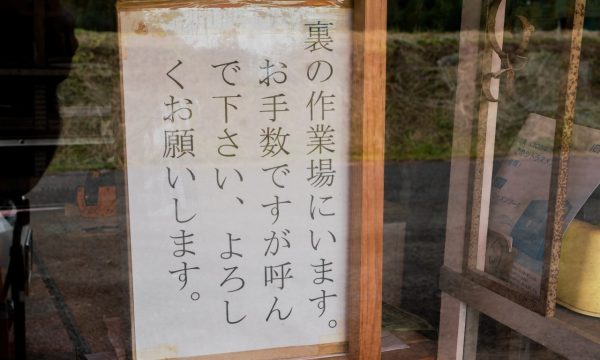 裏の作業場にいます。
お手数ですが呼ん
で下さい、よろし
くお願いします。